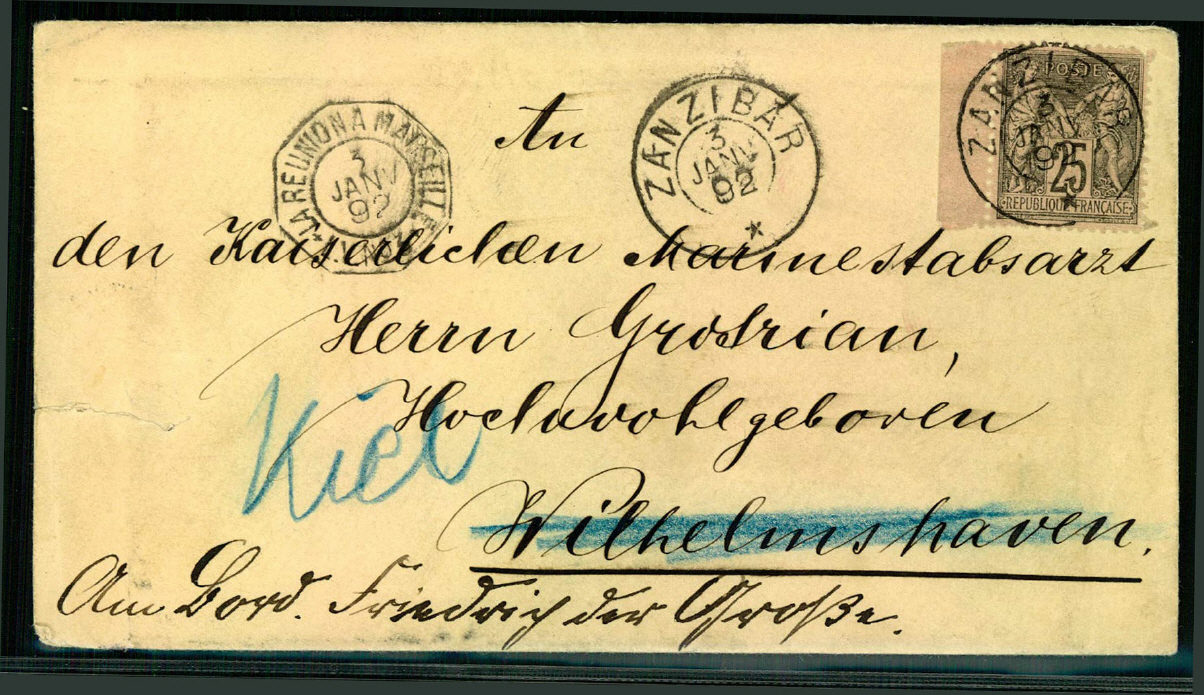 An
den Kaiserlichen Marinestabsarzt
Herrn Grotrian,
Hochwohlgeboren
Wilhelmshaven.
Kiel
Am Bord. Friedrich der Große.
LA REUNION A MARSEILLE
3
JANV
92
ZANZIBAR
3
JANV
92
*
ZANZIBAR
3
JANV
92
*
POSTE
25
REPUBLIQUE FRANÇAISE